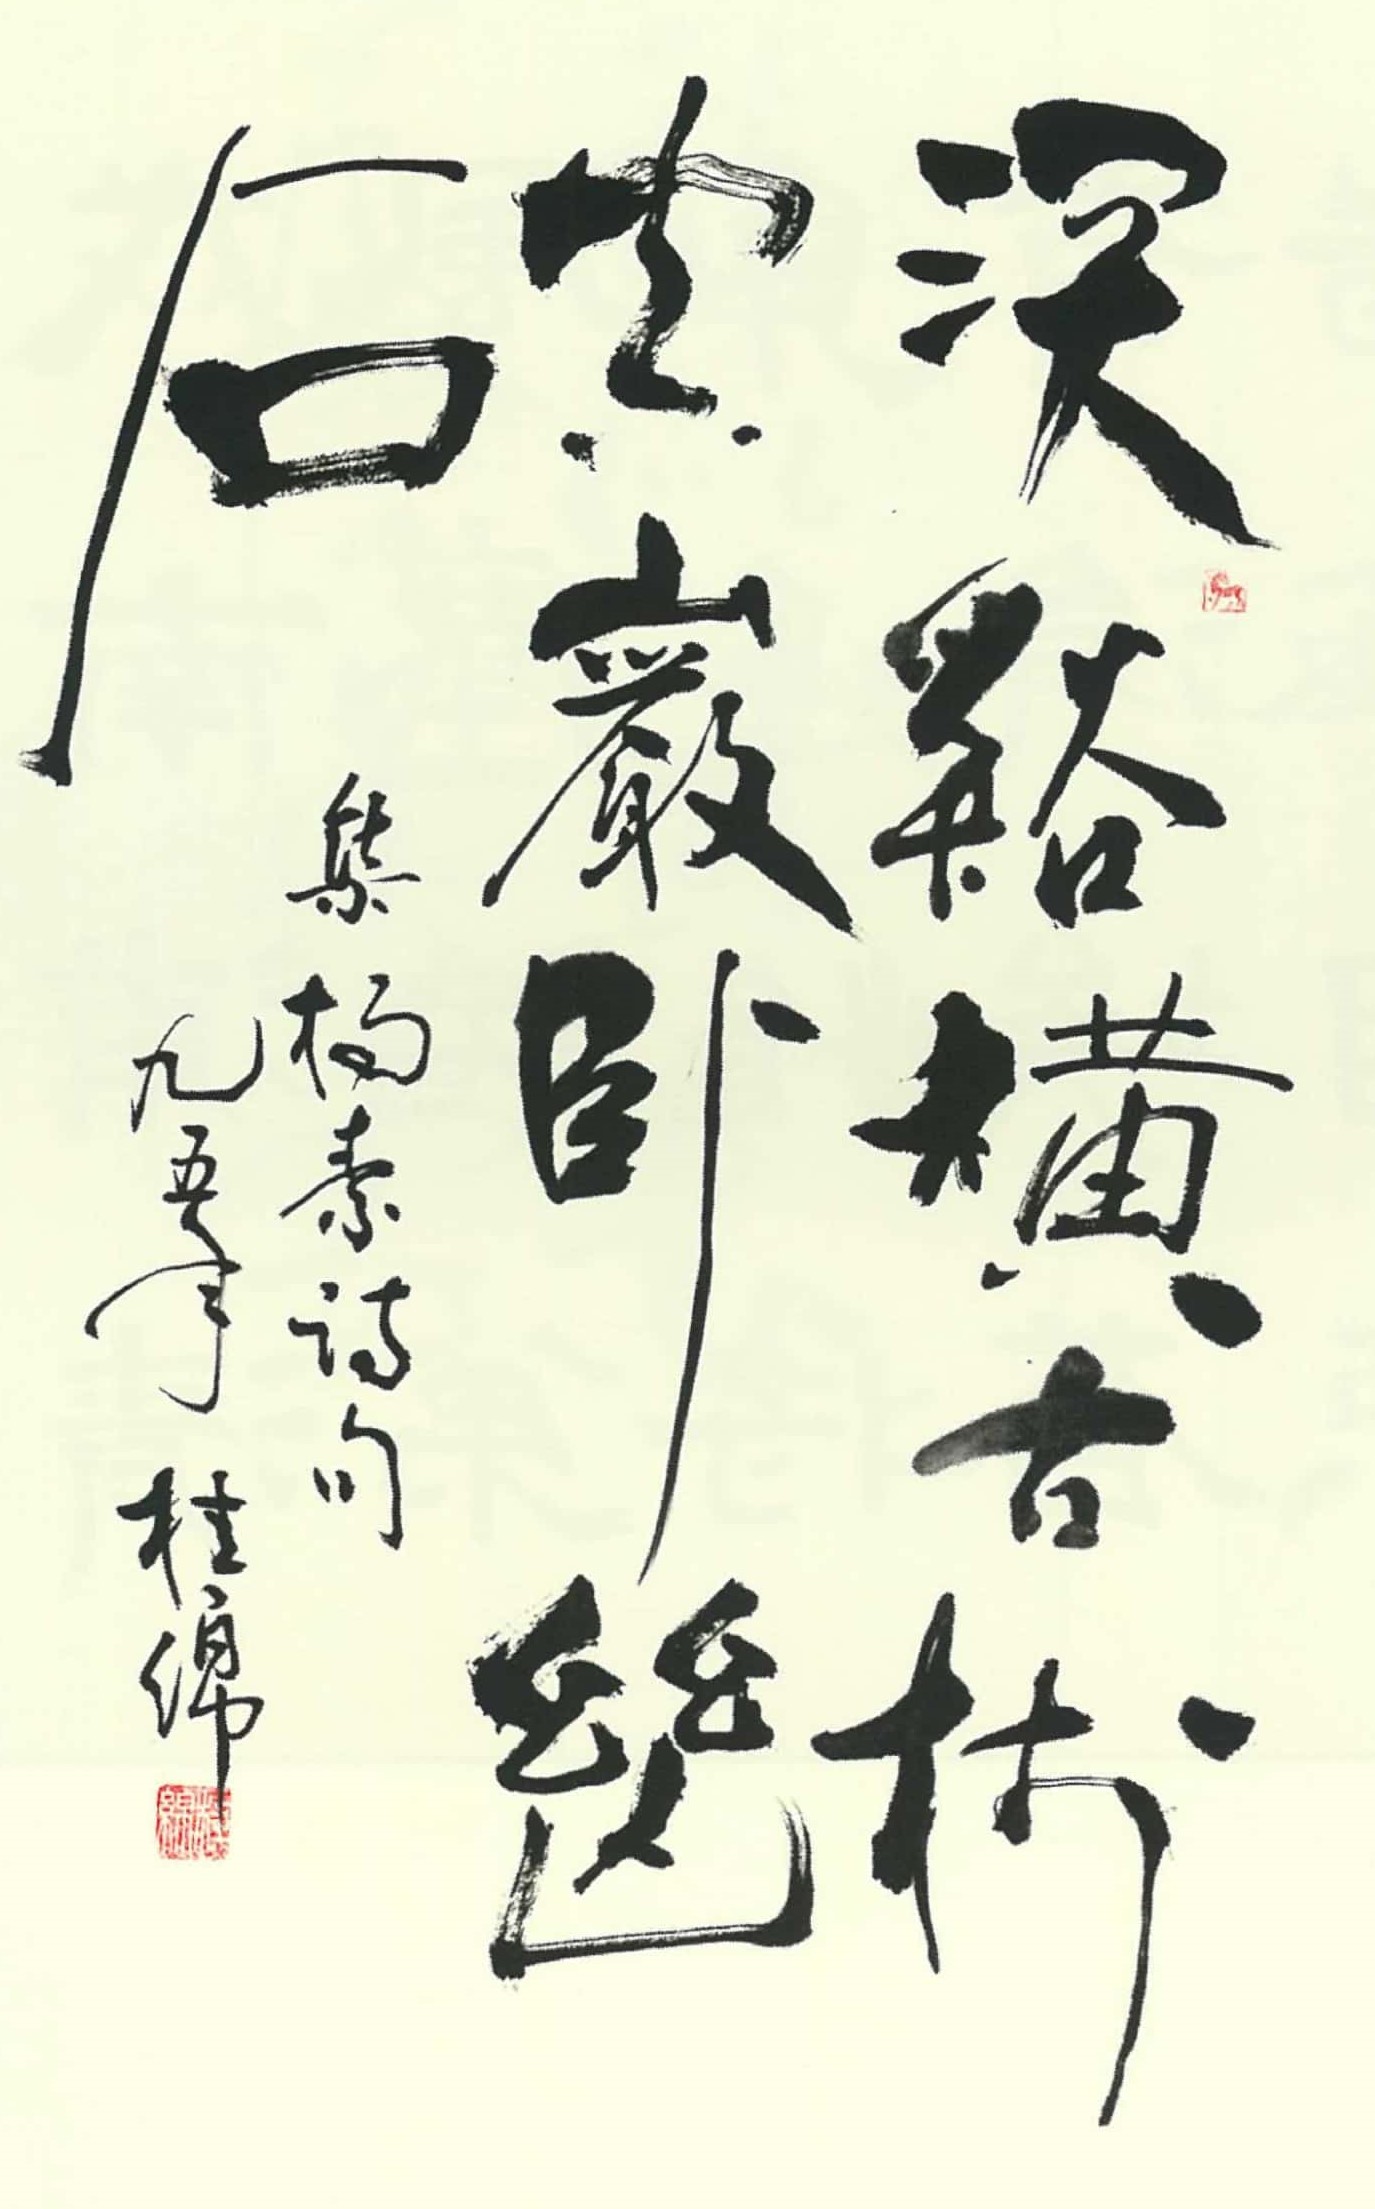 深谿橫古樹
空巖臥幽石
集楊素詩句
九五年 桂綿